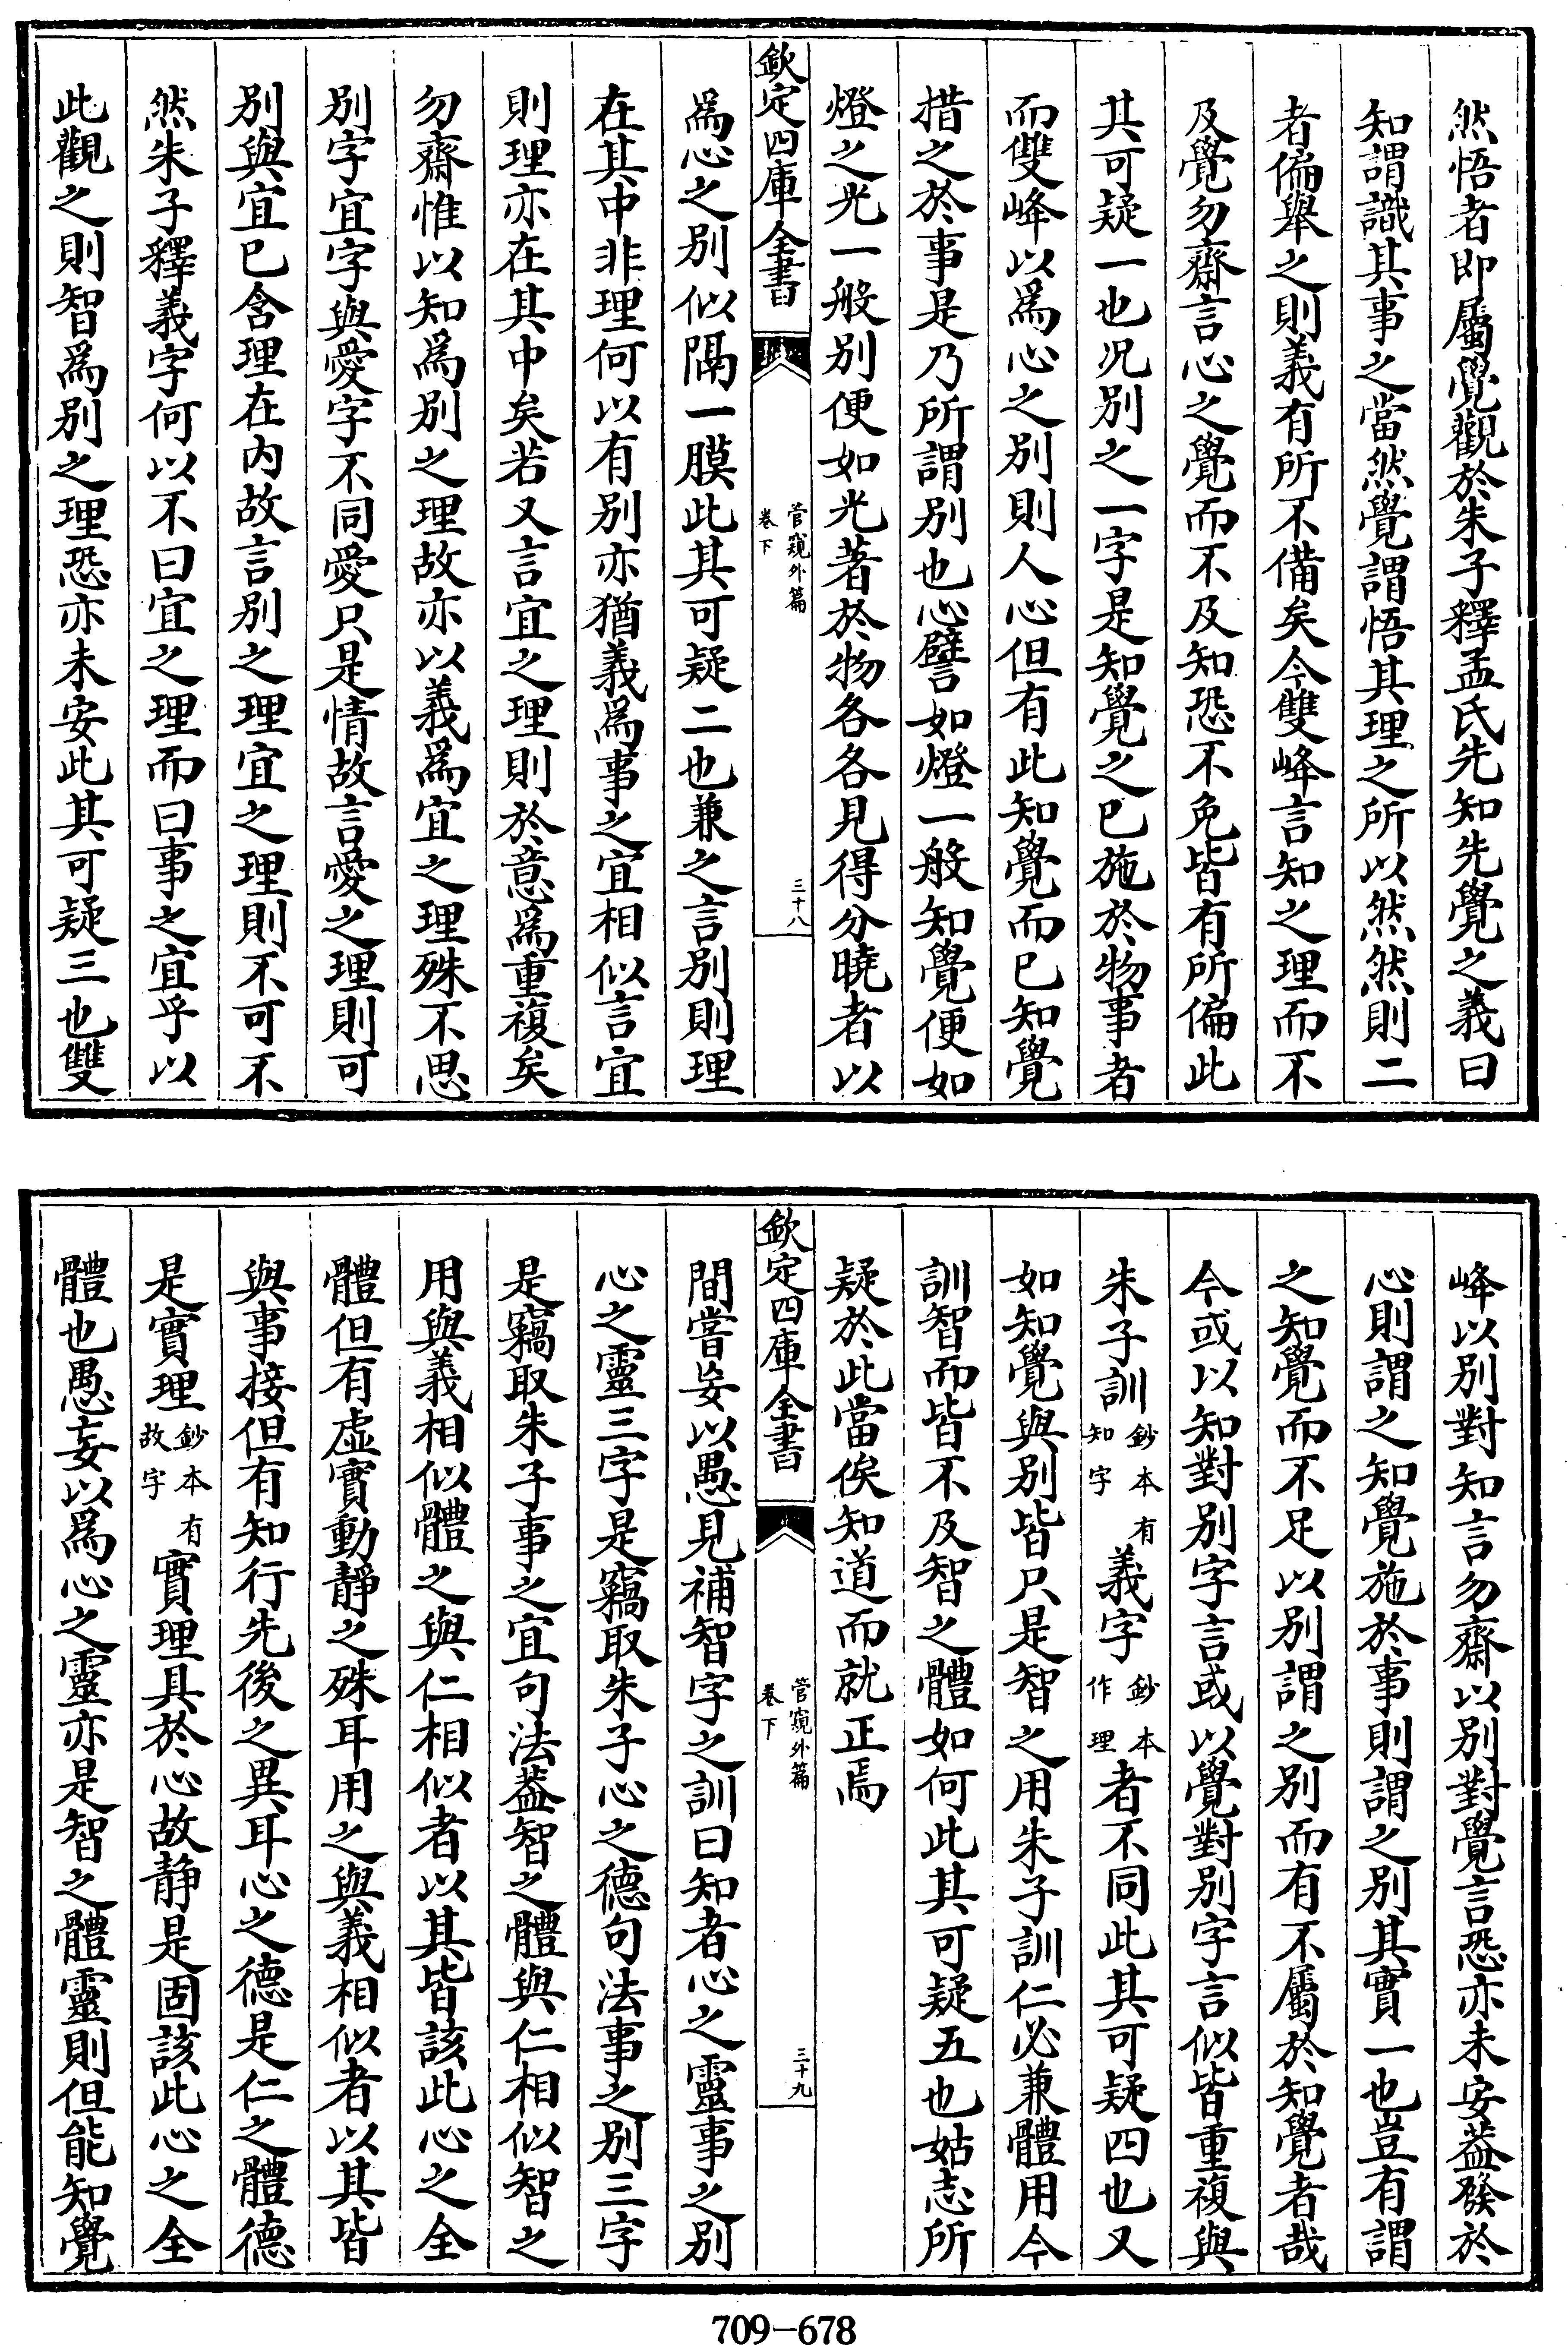 然悟者即屬覺觀於朱子釋孟氏先知先覺之義曰
知謂識其事之當然覺謂悟其理之所以然然則二
者偏舉之則義有所不備矣今雙峰言知之理而不
及覺勿齋言心之覺而不及知恐不免皆有所偏此
其可疑一也况别之一字是知覺之已施於物事者
而雙峰以爲心之别則人心但有此知覺而已知覺
措之於事是乃所謂别也心譬如燈一般知覺便如
燈之光一般别便如光著於物各各見得分曉者以
欽定四庫全書
管窺外篇
卷下
三十八
爲心之别似隔一膜此其可疑二也兼之言别則理
在其中非理何以有别亦猶義爲事之宜相似言宜
則理亦在其中矣若又言宜之理則於意爲重複矣
勿齋惟以知爲别之理故亦以義爲宜之理殊不思
别字宜字與愛字不同愛只是情故言愛之理則可
别與宜已含理在内故言别之理宜之理則不可不
然朱子釋義字何以不曰宜之理而曰事之宜乎以
此觀之則智爲别之理恐亦未安此其可疑三也雙
峰以别對知言勿齋以别對覺言恐亦未安葢發於
心則謂之知覺施於事則謂之别其實一也豈有謂
之知覺而不足以别謂之别而有不屬於知覺者哉
今或以知對别字言或以覺對别字言似皆重複與
朱子訓鈔本有知字義字鈔本作理者不同此其可疑四也又
如知覺與别皆只是智之用朱子訓仁必兼體用今
訓智而皆不及智之體如何此其可疑五也姑志所
疑於此當俟知道而就正焉
欽定四庫全書
管窺外篇
卷下
三十九
間嘗妄以愚見補智字之訓曰知者心之靈事之别
心之靈三字是竊取朱子心之德句法事之别三字
是竊取朱子事之宜句法葢智之體與仁相似智之
用與義相似體之與仁相似者以其皆該此心之全
體但有虛實動靜之殊耳用之與義相似者以其皆
與事接但有知行先後之異耳心之德是仁之體德
是實理鈔本有故字實理具於心故靜是固該此心之全
體也愚妄以爲心之靈亦是智之體靈則但能知覺
709-678